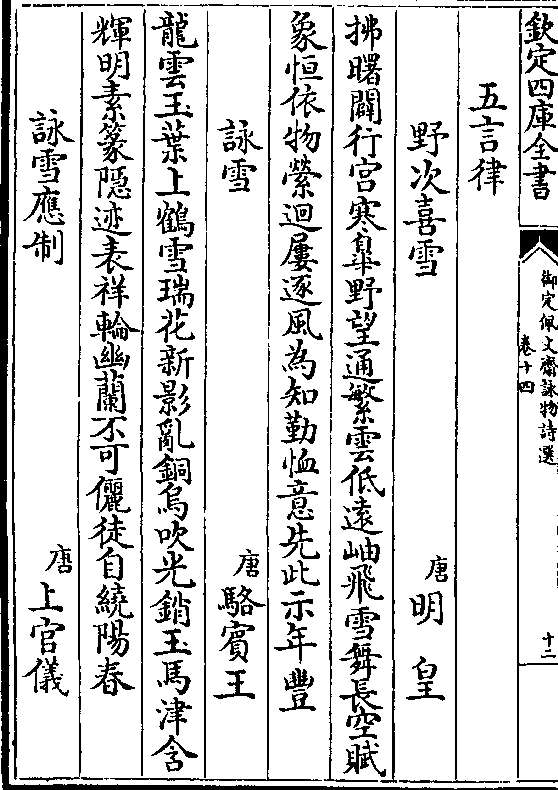 欽定四庫全書
御定佩文齋詠物詩選
卷十四
十二
五言律
野次喜雪
唐 明皇
拂曙闢行宮寒臯野望通繁雲低遠岫飛雪舞長空賦
象恒依物縈迴屢逐風為知勤恤意先此示年豐
詠雪
唐 駱賓王
龍雲玉葉上鶴雪瑞花新影亂銅烏吹光銷玉馬津含
輝明素篆隠迹表祥輪幽蘭不可儷徒自繞陽春
詠雪應制
唐 上官儀